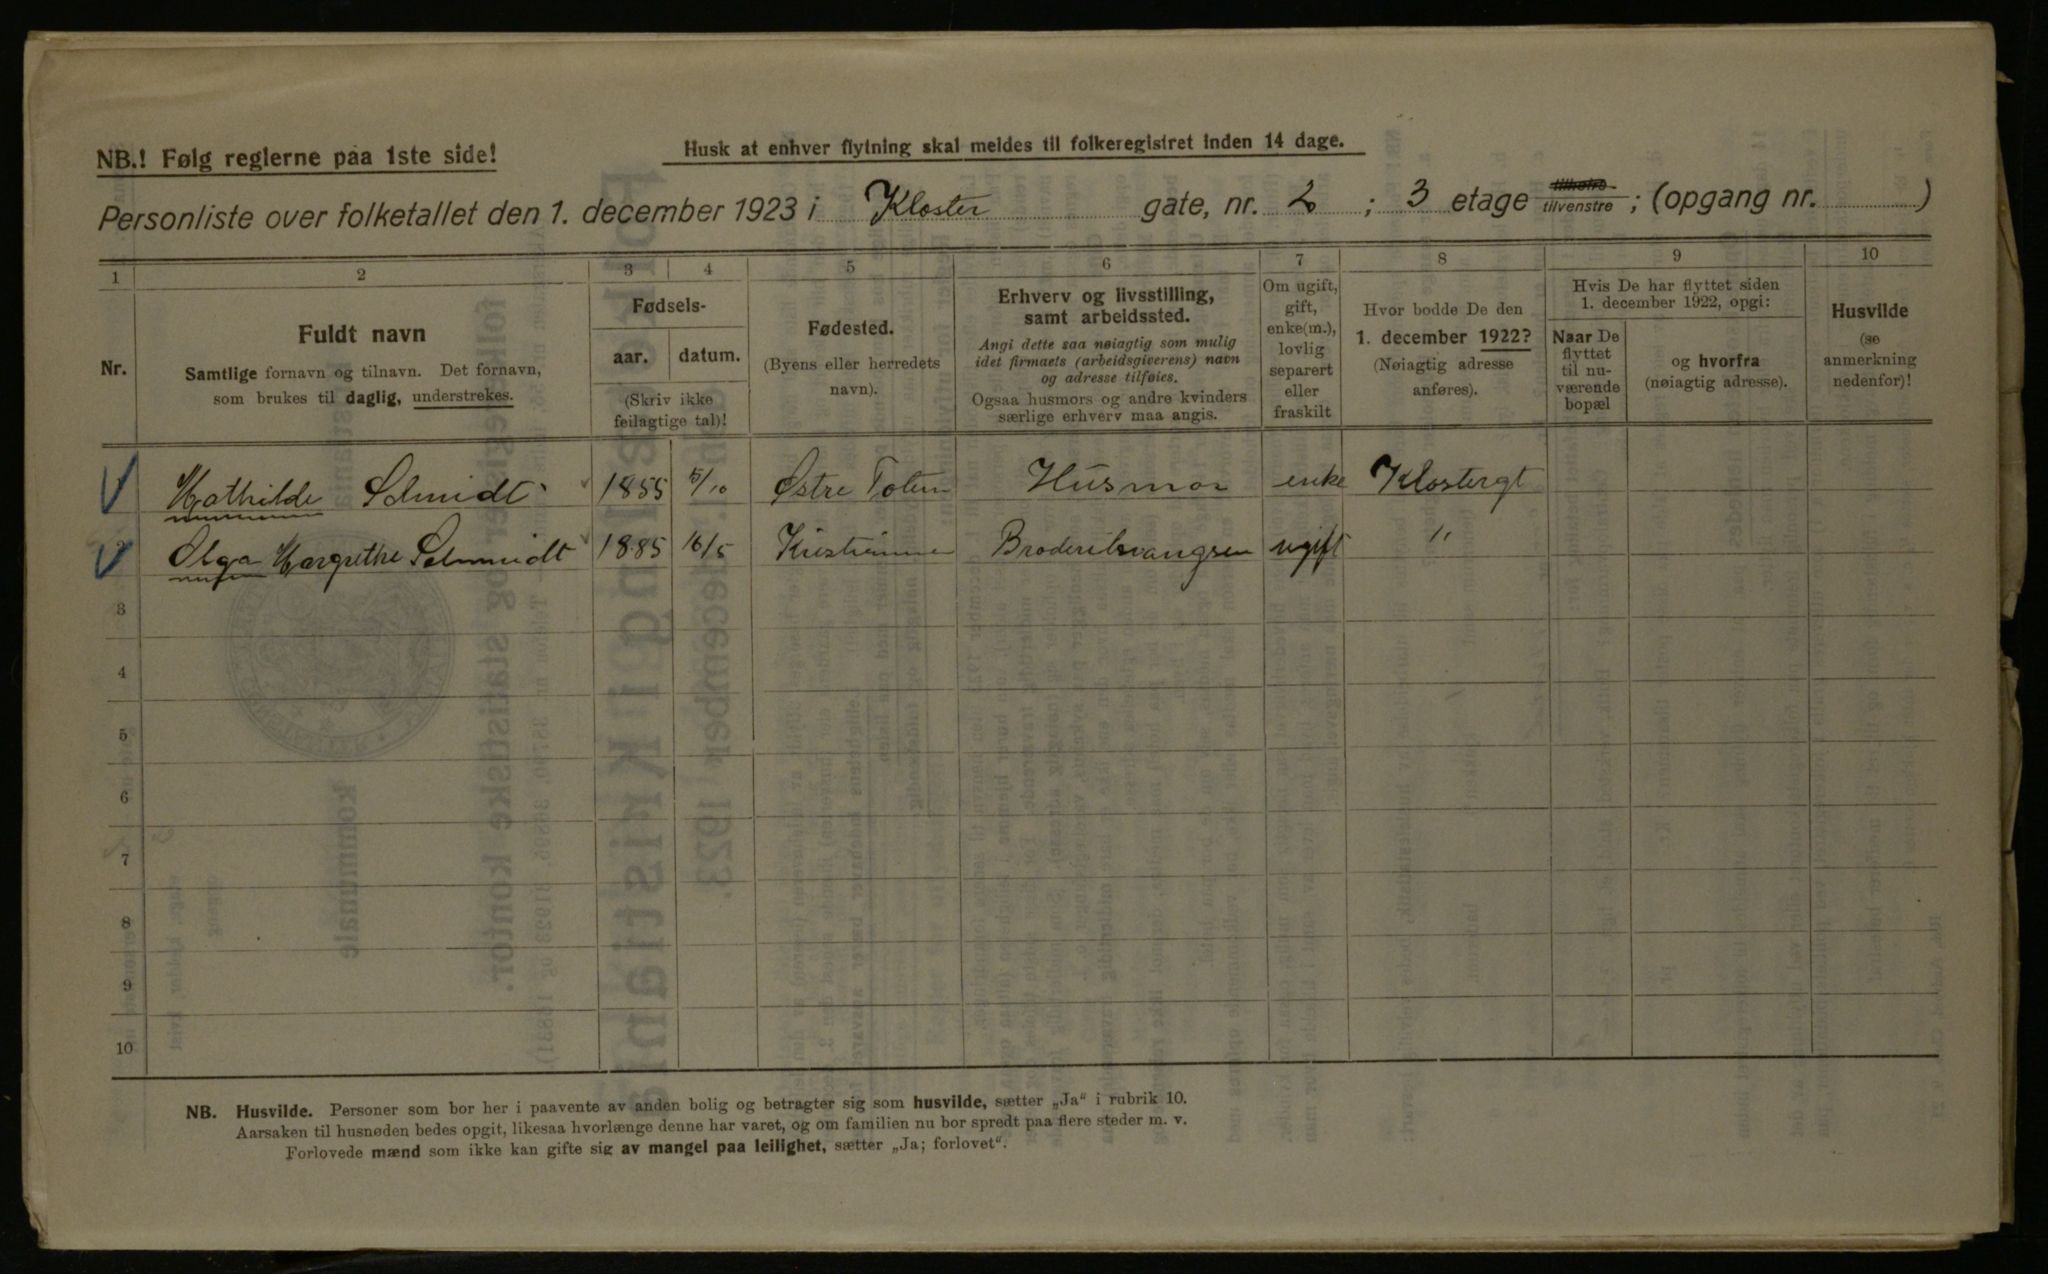 NB.! Følg reglerne paa 1ste side!
Husk at enhver flytning skal meldes til folkeregistret inden 14 dage.
Personliste over folketallet den 1. december 1923 i Kloster gate, nr. 2 ; 3 etage tilhøire tilvenstre ; (opgang nr. )
1 2 3 4 5 6 7 8 9 10
Nr.
Fuldt navn
Samtlige fornavn og tilnavn. Det fornavn,
som brukes til daglig, understrekes.
Fødsels-
aar. datum.
(Skriv ikke
feilagtige tal)!
Fødested.
(Byens eller herredets
navn).
Erhverv og livsstilling,
samt arbeidssted.
Angi dette saa nøiagtig som mulig
idet firmaets (arbeidsgiverens) navn
og adresse tilføies.
Ogsaa husmors og andre kvinders
særlige erhverv maa angis.
Om ugift,
gift,
enke(m.),
lovlig
separert
eller
fraskilt
Hvor bodde De den
1. december 1922?
(Nøiagtig adresse
anføres).
Hvis De har flyttet siden
1. december 1922, opgi:
Naar De
flyttet
til nu-
værende
bopæl
og hvorfra
(nøiagtig adresse).
Husvilde
(se
anmerkning
nedenfor)!
Mathilde Schmidt 1855 5/10 Østre Toten Husmor enke Klostergt
2 Olga Margrethe Schmidt 1885 16/5 ugift "
3
4
5
6
7
8
9
10
NB. Husvilde. Personer som bor her i paavente av anden bolig og betragter sig som husvilde, sætter „Ja" i rubrik 10.
Aarsaken til husnøden bedes opgit, likesaa hvorlænge denne har varet, og om familien nu bor spredt paa flere steder m. v.
Forlovede mænd som ikke kan gifte sig av mangel paa leilighet, sætter „Ja; forlovet".